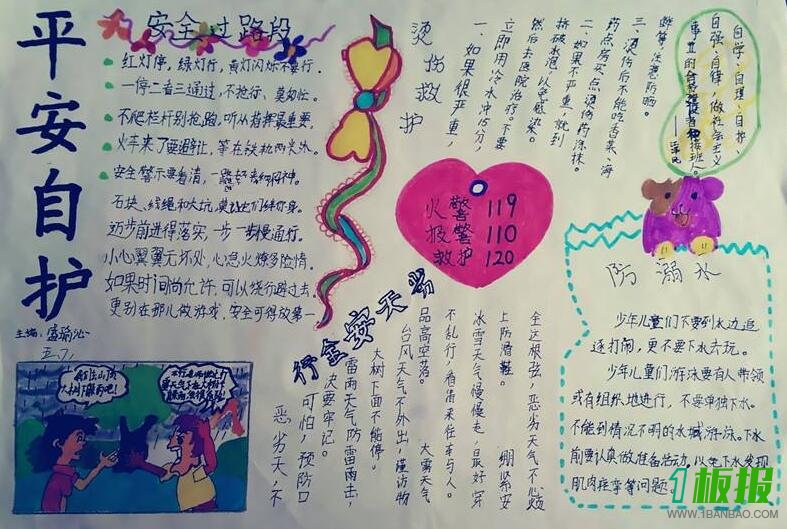 平安自护
主编:
五.7.
安全过路段
红灯停,绿灯行,黄灯闪烁不要行.
一停二看三通过,不抢行、莫匆忙.
不爬栏杆别抢跑,听从指挥最重要,
火车来了要避让,等在铁轨两米外.
安全警示要看清,
石块、线绳和大坑,
迈步前进得落实,一步一步慢通行.
小心翼翼无坏处,心急火燎多险情.
如果时间尚允许,可以绕行避过去,
更别在那儿做游戏,安全可得放第一
烫伤救护
一、如果很严重,
立即用冷水冲15分,
然后去医院治疗。不要
挤破水泡,以免感染。
二、如果不严重,就到
药点房买点烫伤药涂抹。
三、烫伤后不能吃香菜、海
鲜等,注意防晒。
自学、自理、自护、
自强、自律,做社会主义
事业的合格建设者和接班人。
火警 119
报警 110
救护 120
恶劣天气安全行
恶劣天,不
可怕,预防口
决要牢记。
雷雨天气防雷雨击,
大树下面不能停。
台风天气不外出,谨防物
品高空落。 大雾天气
不乱行,看清来往车与人。
冰雪天气慢慢走,最好穿
上防滑鞋。 绷紧安
全这根弦,恶劣天气不心烦
防溺水
少年儿童们不要到水边追
逐打闹,更不要下水去玩。
少年儿童们游泳要有人带领
或有组织地进行,不要单独下水。
不能到情况不明的水域游泳。下水
前要认真做准备活动,以免下水发现
肌肉痉挛等问题。
1板报
WWW.1BANBAO.COM